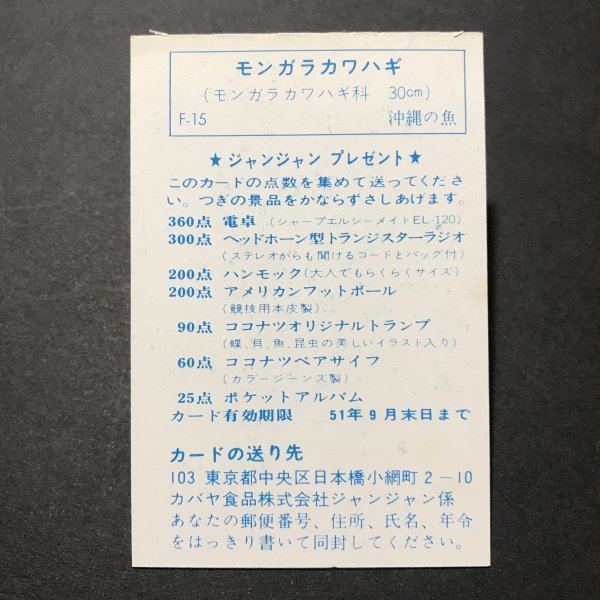 モンガラカワハギ
(モンガラカワハギ科 30cm)
F-15 沖縄の魚
★ジャンジャン プレゼント★
このカードの点数を集めて送ってくださ
い。つぎの景品をかならずさしあげます。
360点 電卓(シャープエルシーメイトEL-120)
300点 ヘッドホーン型トランジスターラジオ
(ステレオがらも聞けるコードとバッグ付)
200点 ハンモック(大人でもらくらくサイズ)
200点 アメリカンフットボール
(競技用本皮製)
90点 ココナツオリジナルトランプ
(蝶、貝、魚、昆虫の美しいイラスト入り)
60点 ココナツペアサイフ
(カラージーンズ製)
25点 ポケットアルバム
カード有効期限 51年9月末日まで
カードの送り先
103 東京都中央区日本橋小網町2-10
カバヤ食品株式会社ジャンジャン係
あなたの郵便番号、住所、氏名、年令
をはっきり書いて同封してください。